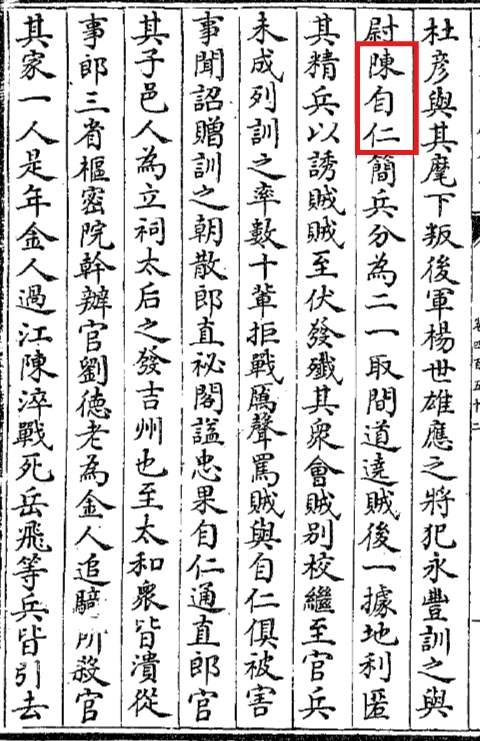 杜彦與其麾下叛後軍楊世雄應之將犯永豐訓之與
尉陳自仁簡兵分為二一取間道遶賊後一據地利匿
其精兵以誘賊賊至伏發殲其衆會賊别校繼至官兵
未成列訓之率數十輩拒戰厲聲罵賊與自仁俱被害
事聞詔贈訓之朝散郎直祕閣諡忠果自仁通直郎官
其子邑人為立祠太后之發吉州也至太和衆皆潰從
事郎三省樞密院幹辦官劉德老為金人追騎所殺官
其家一人是年金人過江陳淬戰死岳飛等兵皆引去